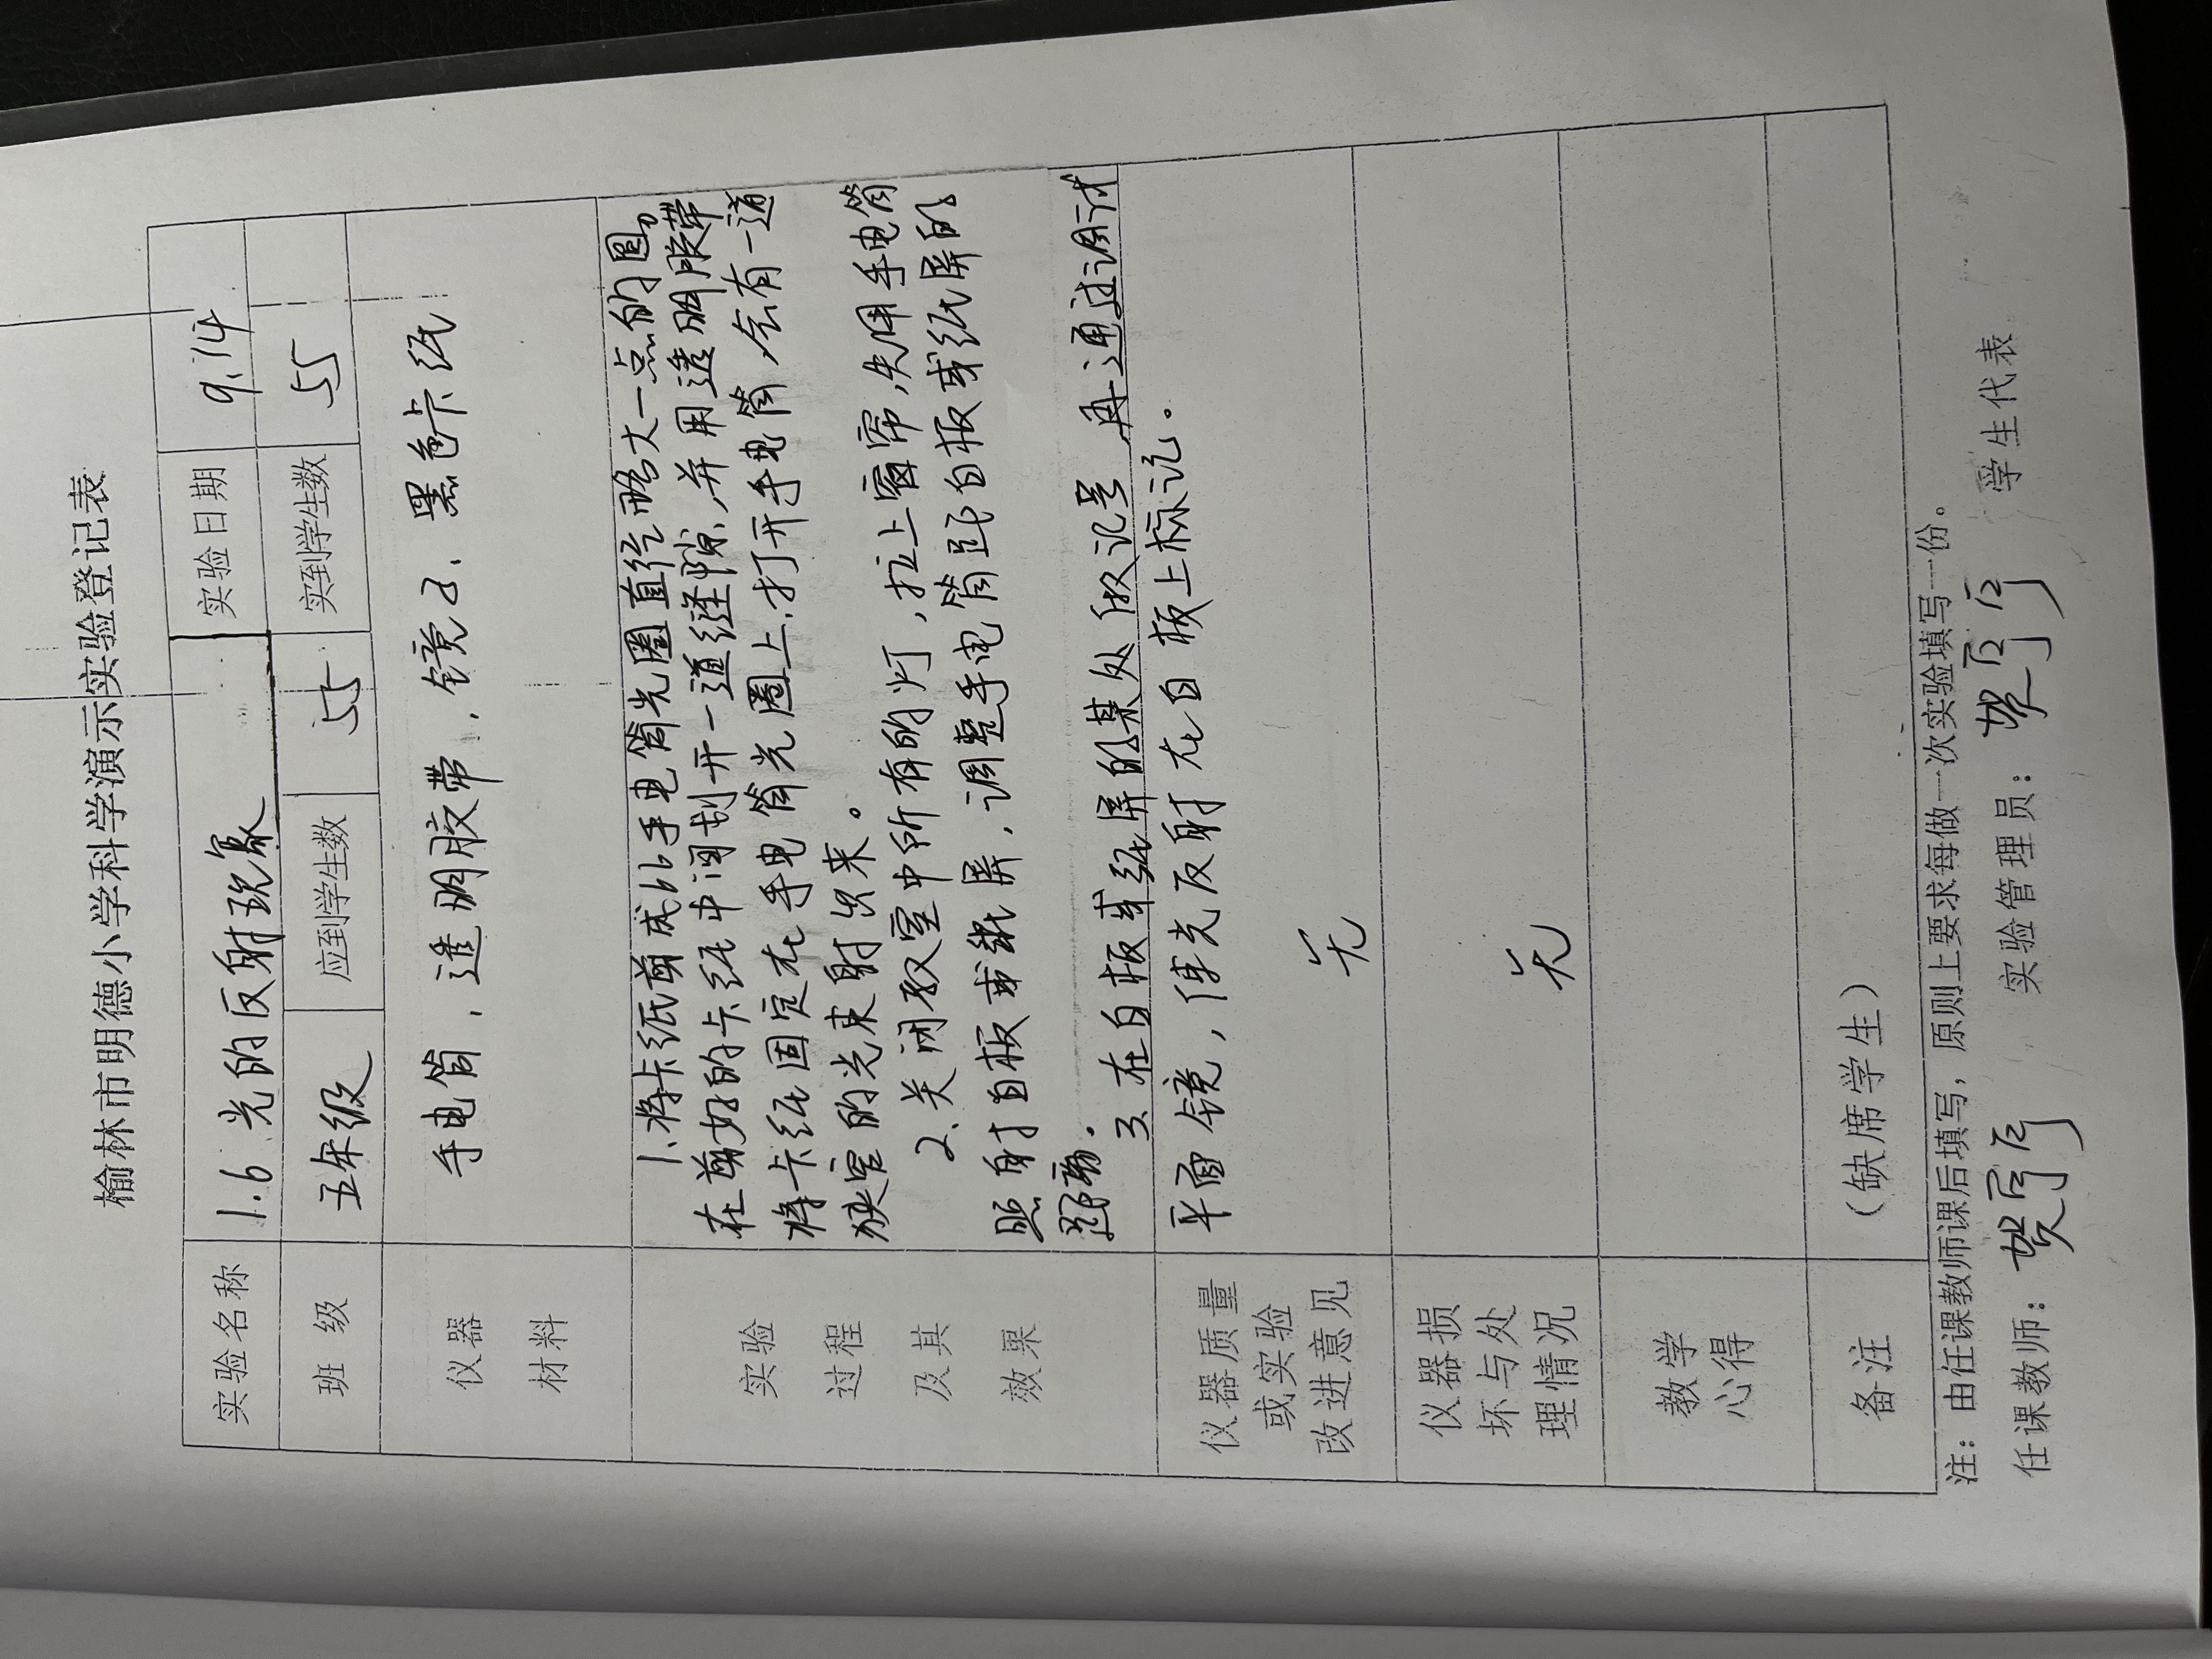 榆林市明德小学科学演示实验登记表
实验名称 1.6 光的反射现象 实验日期 9.14
班 级 五年级 应到学生数 55 实到学生数 55
仪器 材料 手电筒，透明胶带，镜子、黑色卡纸
实验 过程 及其 效果
1.将卡纸剪成比手电筒光圈直径略大一点的圆。
在剪好的卡纸中间划开一道缝隙，并用透明胶带
将卡纸固定在手电筒光圈上，打开手电筒，会有一道
狭窄的光束射出来。
2.关闭教室中所有的灯，拉上窗帘，先用手电筒
照射白板或纸屏，调整手电筒距白板或纸屏的
距离.
3.在白板或纸屏的某处做记号 再通过调试
平面镜，使光反射在白板上标记。
仪器质量 或实验 改进意见 无
仪器损 坏与处 理情况 无
教学 心得
备注 （缺席学生）
注：由任课教师课后填写，原则上要求每做一次实验填写一份。
任课教师： 实验管理员： 学生代表